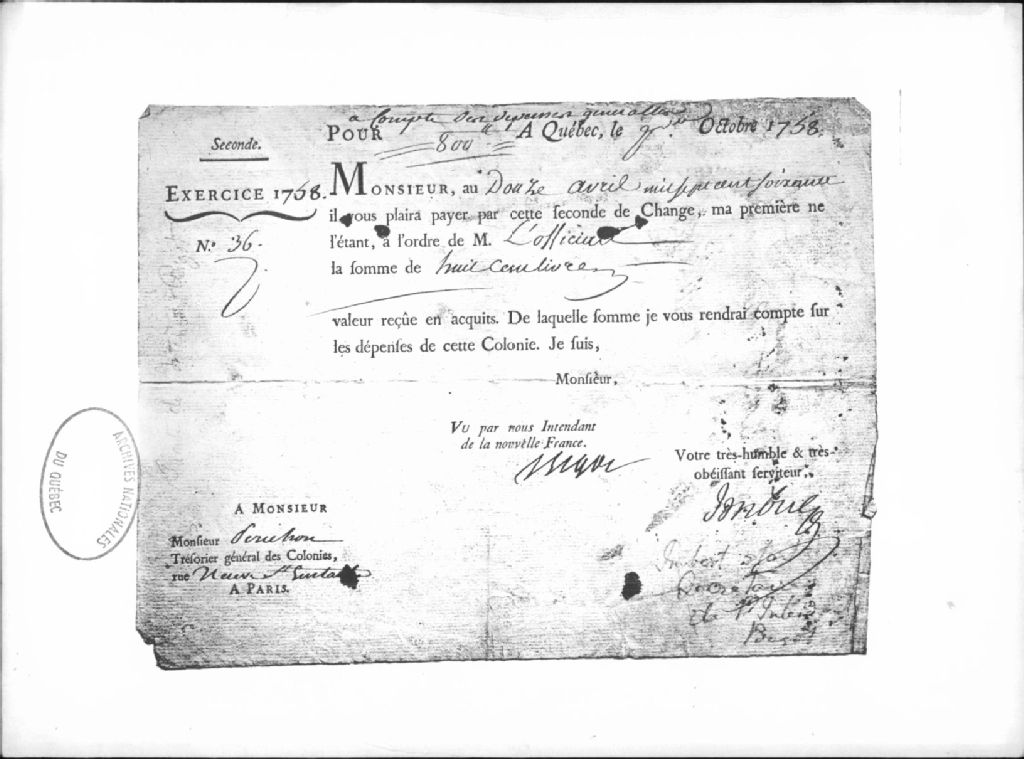 a Compte des depenses generalles
Seconde.
POUR 800ᵗᵗ A Québec, le Octobre 1758.
EXERCICE 1758.
MONSIEUR, au Douze avril mil sept cent soixante
il vous plaira payer par cette ſeconde de Change, ma première ne
N.º 36.
l'étant, à l'ordre de M. L'officiale
la ſomme de huit Cent livres
valeur reçûe en acquits. De laquelle ſomme je vous rendrai compte ſur
les dépenſes de cette Colonie. Je ſuis,
Monſieur,
VU par nous Intendant
de la nouvelle France.
Bigot
Votre très-humble & très-
obéiſſant ſerviteur,
Imbert
A MONSIEUR
Monſieur Perichon
Tréſorier général des Colonies,
rue Neuve St Eustache
A PARIS.
Imbert
Secretaire
de
Bigot
ARCHIVES NATIONALES
DU QUÉBEC